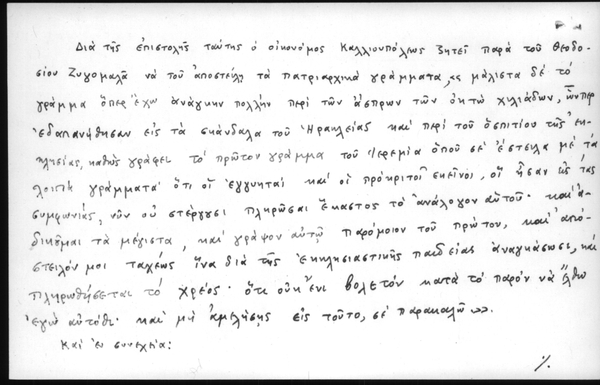 Διὰ τῆς ἐπιστολῆς ταύτης ὁ οἰκονόμος Καλλιουπόλεως ζητεῖ παρὰ τοῦ Θεοδο-
σίου Ζυγομαλᾶ νὰ τοῦ ἀποστείλῃ τὰ πατριαρχικὰ γράμματα, << μάλιστα δὲ τὸ
γράμμα ὅπερ ἔχω ἀνάγκην πολλὴν περὶ τῶν ἄσπρων τῶν ὀκτὼ χιλιάδων, ὧνπερ
ἐδαπανήθησαν εἰς τὰ σκάνδαλα τοῦ Ἡρακλείας καὶ περὶ τοῦ ὁσπιτίου τῆς ἐκ-
κλησίας, καθὼς γράφει τὸ πρῶτον γράμμα τοῦ Ἱερεμία ὁποῦ σε ἔστειλα μὲ τὰ
λοιπὰ γράμματα· ὅτι οἱ ἐγγυηταὶ καὶ οἱ πρόκριτοι ἐκεῖνοι, οἳ ἦσαν εἰς τὰς
συμφωνίας, νῦν οὐ στέργουσι πληρῶσαι ἕκαστος τὸ ἀνάλογον αὐτοῦ· καὶ ἀ-
δικοῦμαι τὰ μέγιστα, καὶ γράψον αὐτῷ παρόμοιον τοῦ πρώτου, καὶ ἀπό-
στειλόν μοι ταχέως ἵνα διὰ τῆς ἐκκλησιαστικῆς παιδείας ἀναγκάσωσι, καὶ
πληρωθήσεται τὸ χρέος· ὅτι οὐκ ἔνι βολετὸν κατὰ τὸ παρὸν νὰ ἔλθω
ἐγὼ αὐτόθι· καὶ μὴ ἀμελήσῃς εἰς τοῦτο, σὲ παρακαλῶ >>.
Καὶ ἐν συνεχείᾳ:
./.